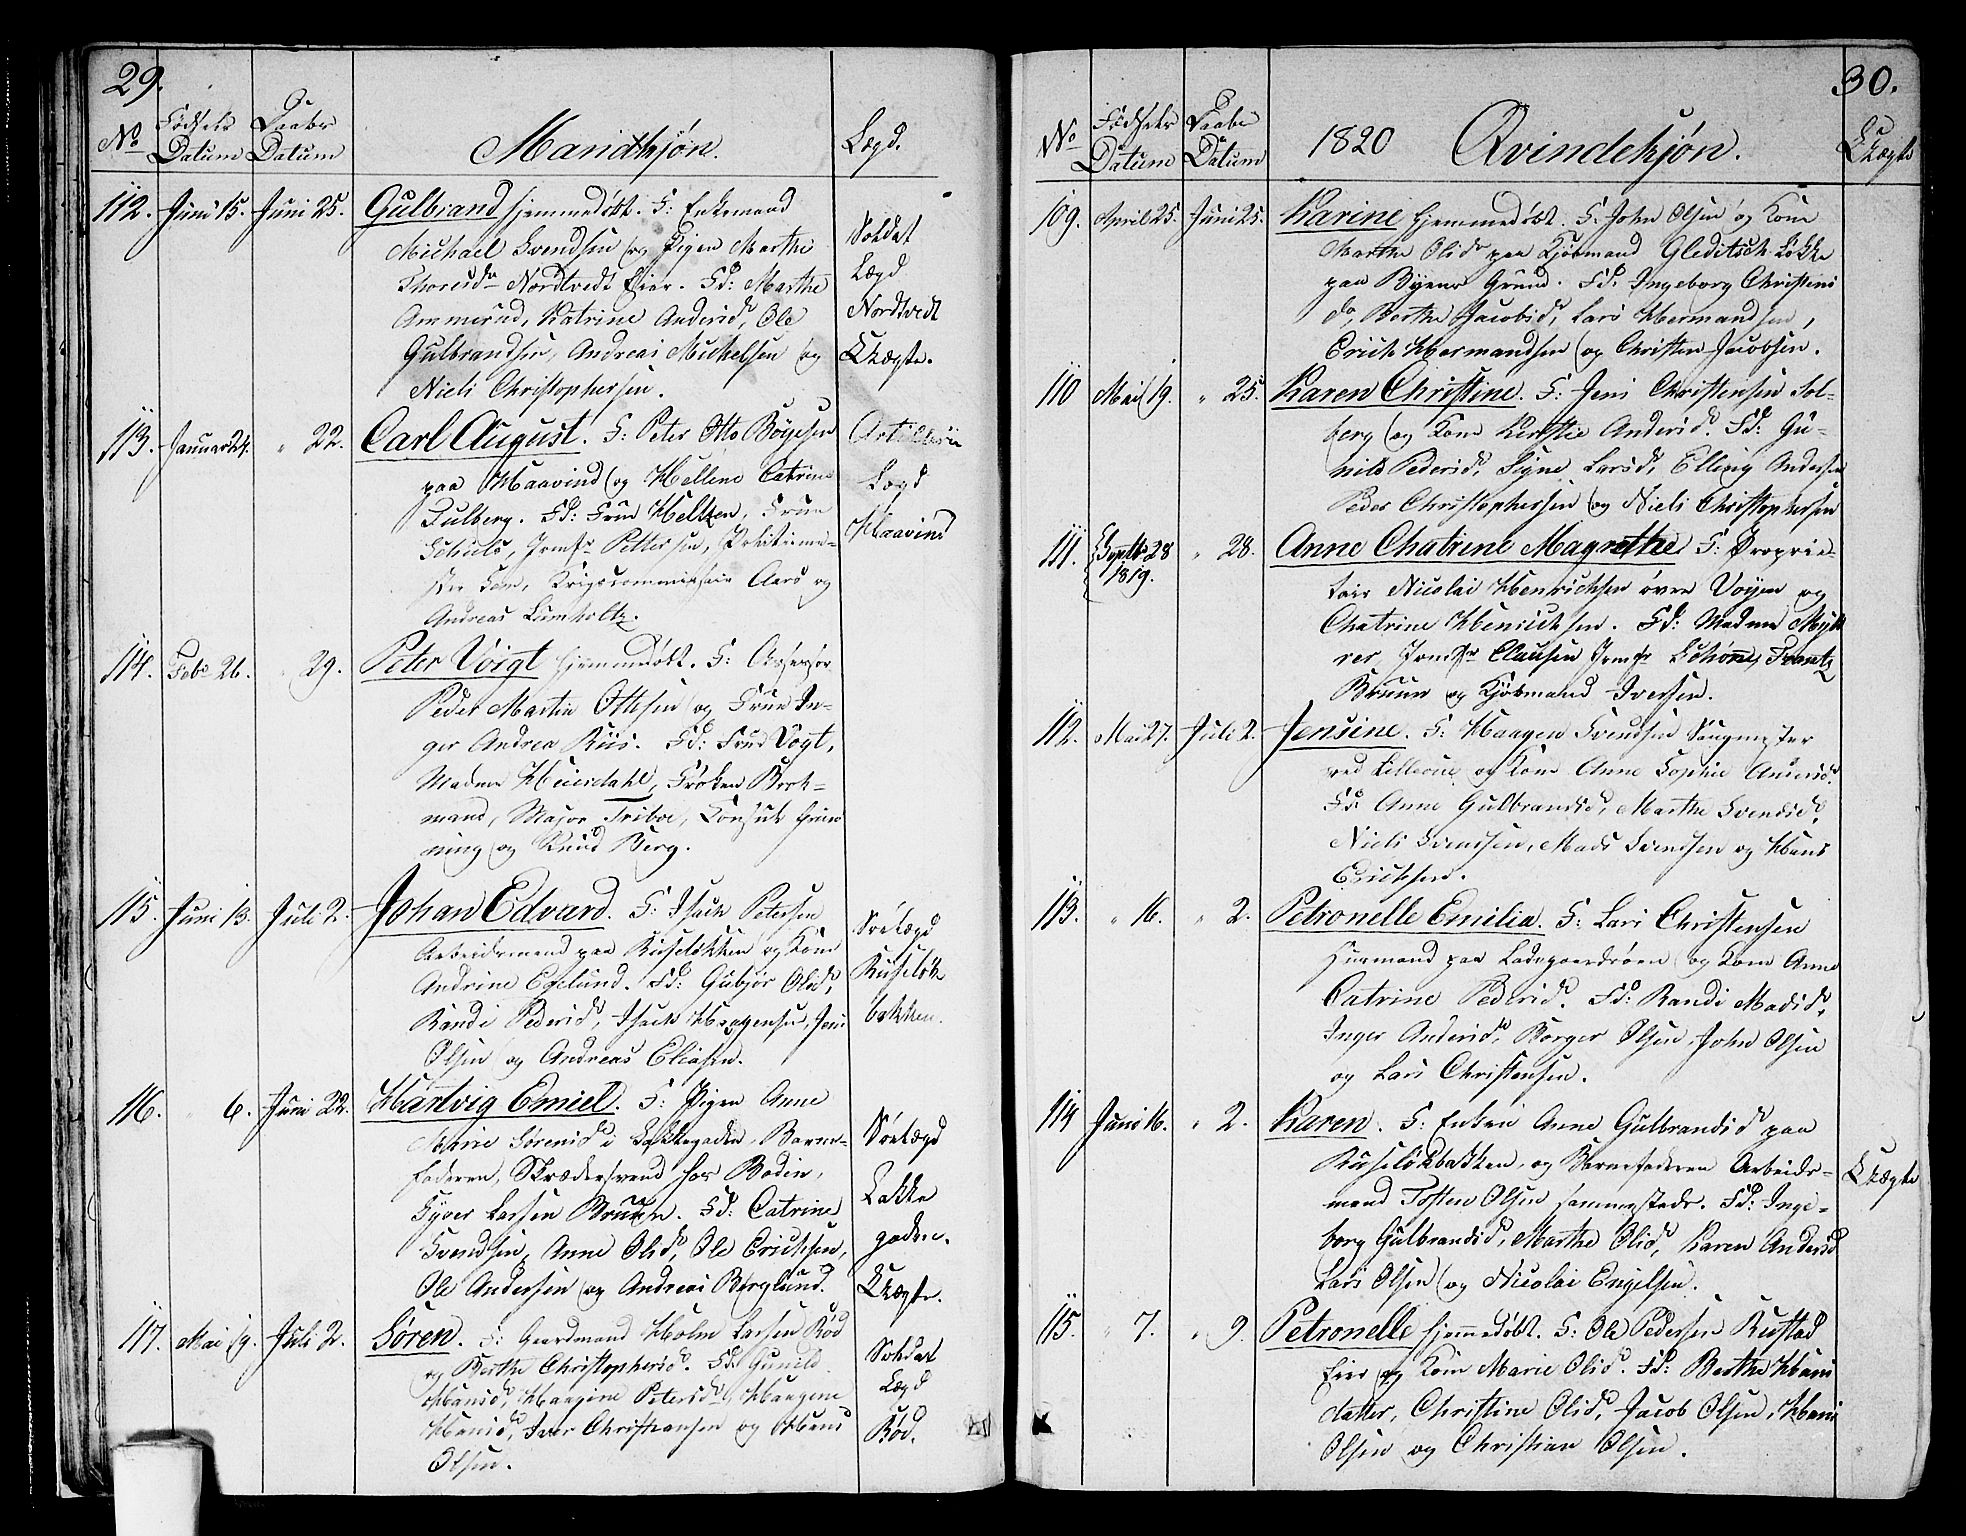 29.
No Fødsels Datum Daabs Datum Mandkjøn. Lægd.
112. Juni 15. Juni 25. Gulbrand hjemmedøbt. F: Enkemand
Michael Svendsen og Pigen Marthe
Thoresdr Nordtvedt Eier. Fd: Marthe
Ammerud, Katrine Andersd, Ole
Gulbrandsen, Andreas Michelsen og
Niels Christophersen.
Soldat
Lægd
Nordtvedt
Uægte.
113. Januar 24. " 22. Carl August. F: Peter Otto Böyesen
paa Haavind og Hellene Catrine
Dulberg. Fd: Frue Heltzen, Frue
Schiels, Jomfr Pettersen, Politime-
ster Som, Krigscommissair Aars og
Andreas Lumholtz.
Artillerie
Lægd
Haavind
114. Febr 26. " 29. Peter Voigt hjemmedøbt. F: Assessor
Peder Martin Ottesen og Frue In-
ger Andrea Riis. Fd: Frue Vogt,
Madme Heierdahl, Frøken Brok-
mand, Major Triboe, Konsul Grøn
ning og Knud Berg.
115. Juni 13. Juli 2. Johan Edvard. F: Isach Petersen
Arbeidsmand paa Ruseløkken og Kone
Andrine Egelund. Fd: Gubjør Olsd,
Randi Pedersd, Isach Haagensen, Jens
Olsen og Andreas Eliasen.
Søelægd
Ruseløk
bakken.
116. " 6. Juni 22. Hartvig Emiel. F: Pigen Anne
Marie Sørensd i Bakkegaden, Barne-
faderen, Skrædersvend hos Bodin,
Syver Larsen Bruun. Fd: Catrine
Svendsen, Anne Olsd, Ole Erichsen,
Ole Andersen og Andreas Berglund.
Søelægd
Bakke
gaden.
Uægte.
117. Mai 19. Juli 2. Søren. F: Gaardmand Holm Larsen Rød
og Berthe Christophersd. Fd: Gunild
Hansd, Haagine Petersd, Haagene
Hansd, Iver Christiansen og Hans
Olsen.
Soldat
Lægd
Rød.
30.
No Fødsels Datum Daabs Datum 1820 Qvindekjøn. Uægte
109. April 25. Juni 25. Karine hjemmedøbt. F: John Olsen og Kone
Marthe Olsd paa Kjøbmand Gleditsch Løkke
paa Byens Grund. Fd: Ingeborg Christens
dr, Berthe Jacobsd, Lars Hermandsen,
Erich Hermandsen og Christen Jacobsen.
110 Mai 19. " 25. Karen Christine. F: Jens Christensen Sol-
berg og Kone Kerstie Andersd. Fd: Gu-
nild Pedersd, Signe Larsd, Elling Andersen
Peder Christophersen og Niels Christophersen
111. Septbr 28 1819. " 28. Anne Chatrine Magrethe F: Proprie-
tair Nicolai Henrichsen øvre Voyen og
Chatrine Henrichsen. Fd: Madme Myh
rer, Jomfr Clausen Jomfr Schønne, Frantz
Bruun og Kjøbmand Iversen.
112. Mai 27. Juli 2. Jensine. F: Haagen Svendsen Saugmester
ved Lilleoue og Kone Anne Sophie Andersd.
Fd: Anne Gulbrandsd, Marthe Svendsd,
Niels Svendsen, Mads Svendsen og Hans
Erichsen.
113. " 16. " 2. Petronelle Emilia. F: Lars Christensen
Huusmand paa Ladegaardsøen og Kone Anne
Catrine Pedersd. Fd: Randi Madsd,
Inger Andersd, Børger Olsen, John Olsen
og Lars Christensen.
114 Juni 16. " 2. Karen. F: Enken Anne Gulbrandsd paa
Ruseløkbakken, og Barnefaderen Arbeids-
mand Tosten Olsen sammestæds. Fd: Inge-
borg Gulbrandsd, Marthe Olsd, Karen Andersd
Lars Olsen og Nicolai Engelsen.
Uægte
115. " 7. " 9. Petronelle hjemmedøbt. F: Ole Pedersen Rustad
Eier og Kone Marie Olsd. Fd: Berthe Hans
datter, Christine Olsd, Jacob Olsen, Hans
Olsen og Christian Olsen.